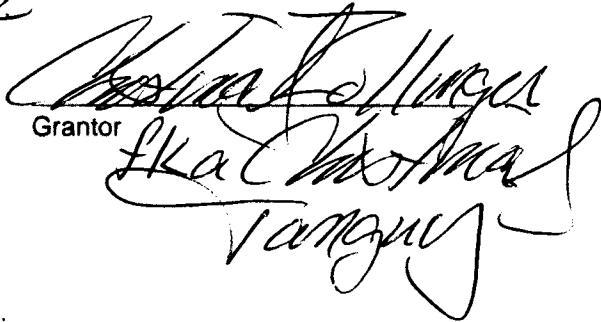 Christina Kollinger
Grantor
fka Christina
Tanguy